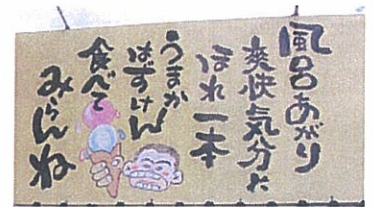 風呂あがり
爽快気分だ
ほれ一本
うまか
はずけん
食べて
みらんね